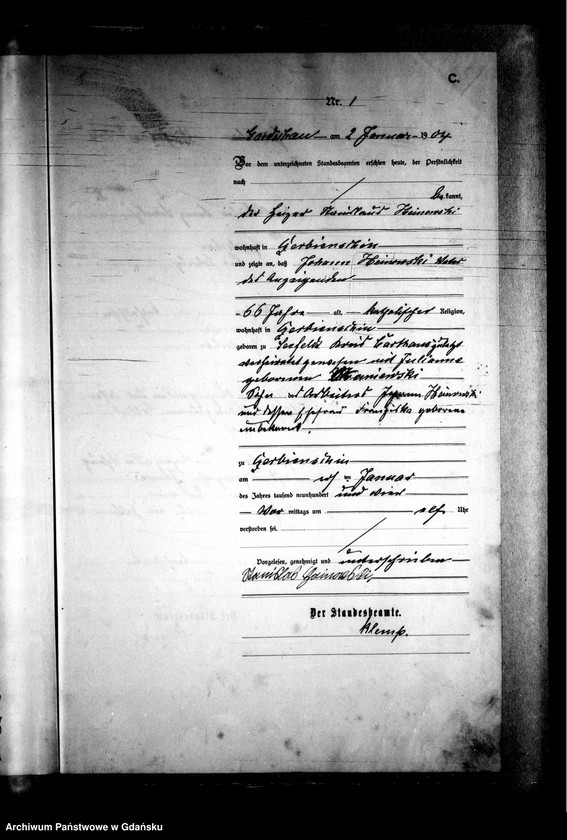 C.
Nr. 1
am 2 Januar 1904
Vor dem unterzeichneten Standesbeamten erschien heute, der Persönlichkeit
nach
kannt,
der Heizer Stanislaus Heinowski
wohnhaft in Garbienschin
und zeigte an, daß Johann Heinowski Vater
des Anzeigenden
66 Jahre alt, katholischer Religion,
wohnhaft in Garbienschin
geboren zu Seefeld Kreis Carthaus zuletzt
verheiratet gewesen mit Julianna
geborenen
Sohn des Arbeiters Johann Heinowski
und dessen Ehefrau Franziska geborene
unbekannt.
zu Garbienschin
am Januar
des Jahres tausend neunhundert und vier
Vor mittags um elf Uhr
verstorben sei.
Vorgelesen, genehmigt und unterschrieben
Der Standesbeamte.
Klemp.
Archiwum Państwowe w Gdańsku